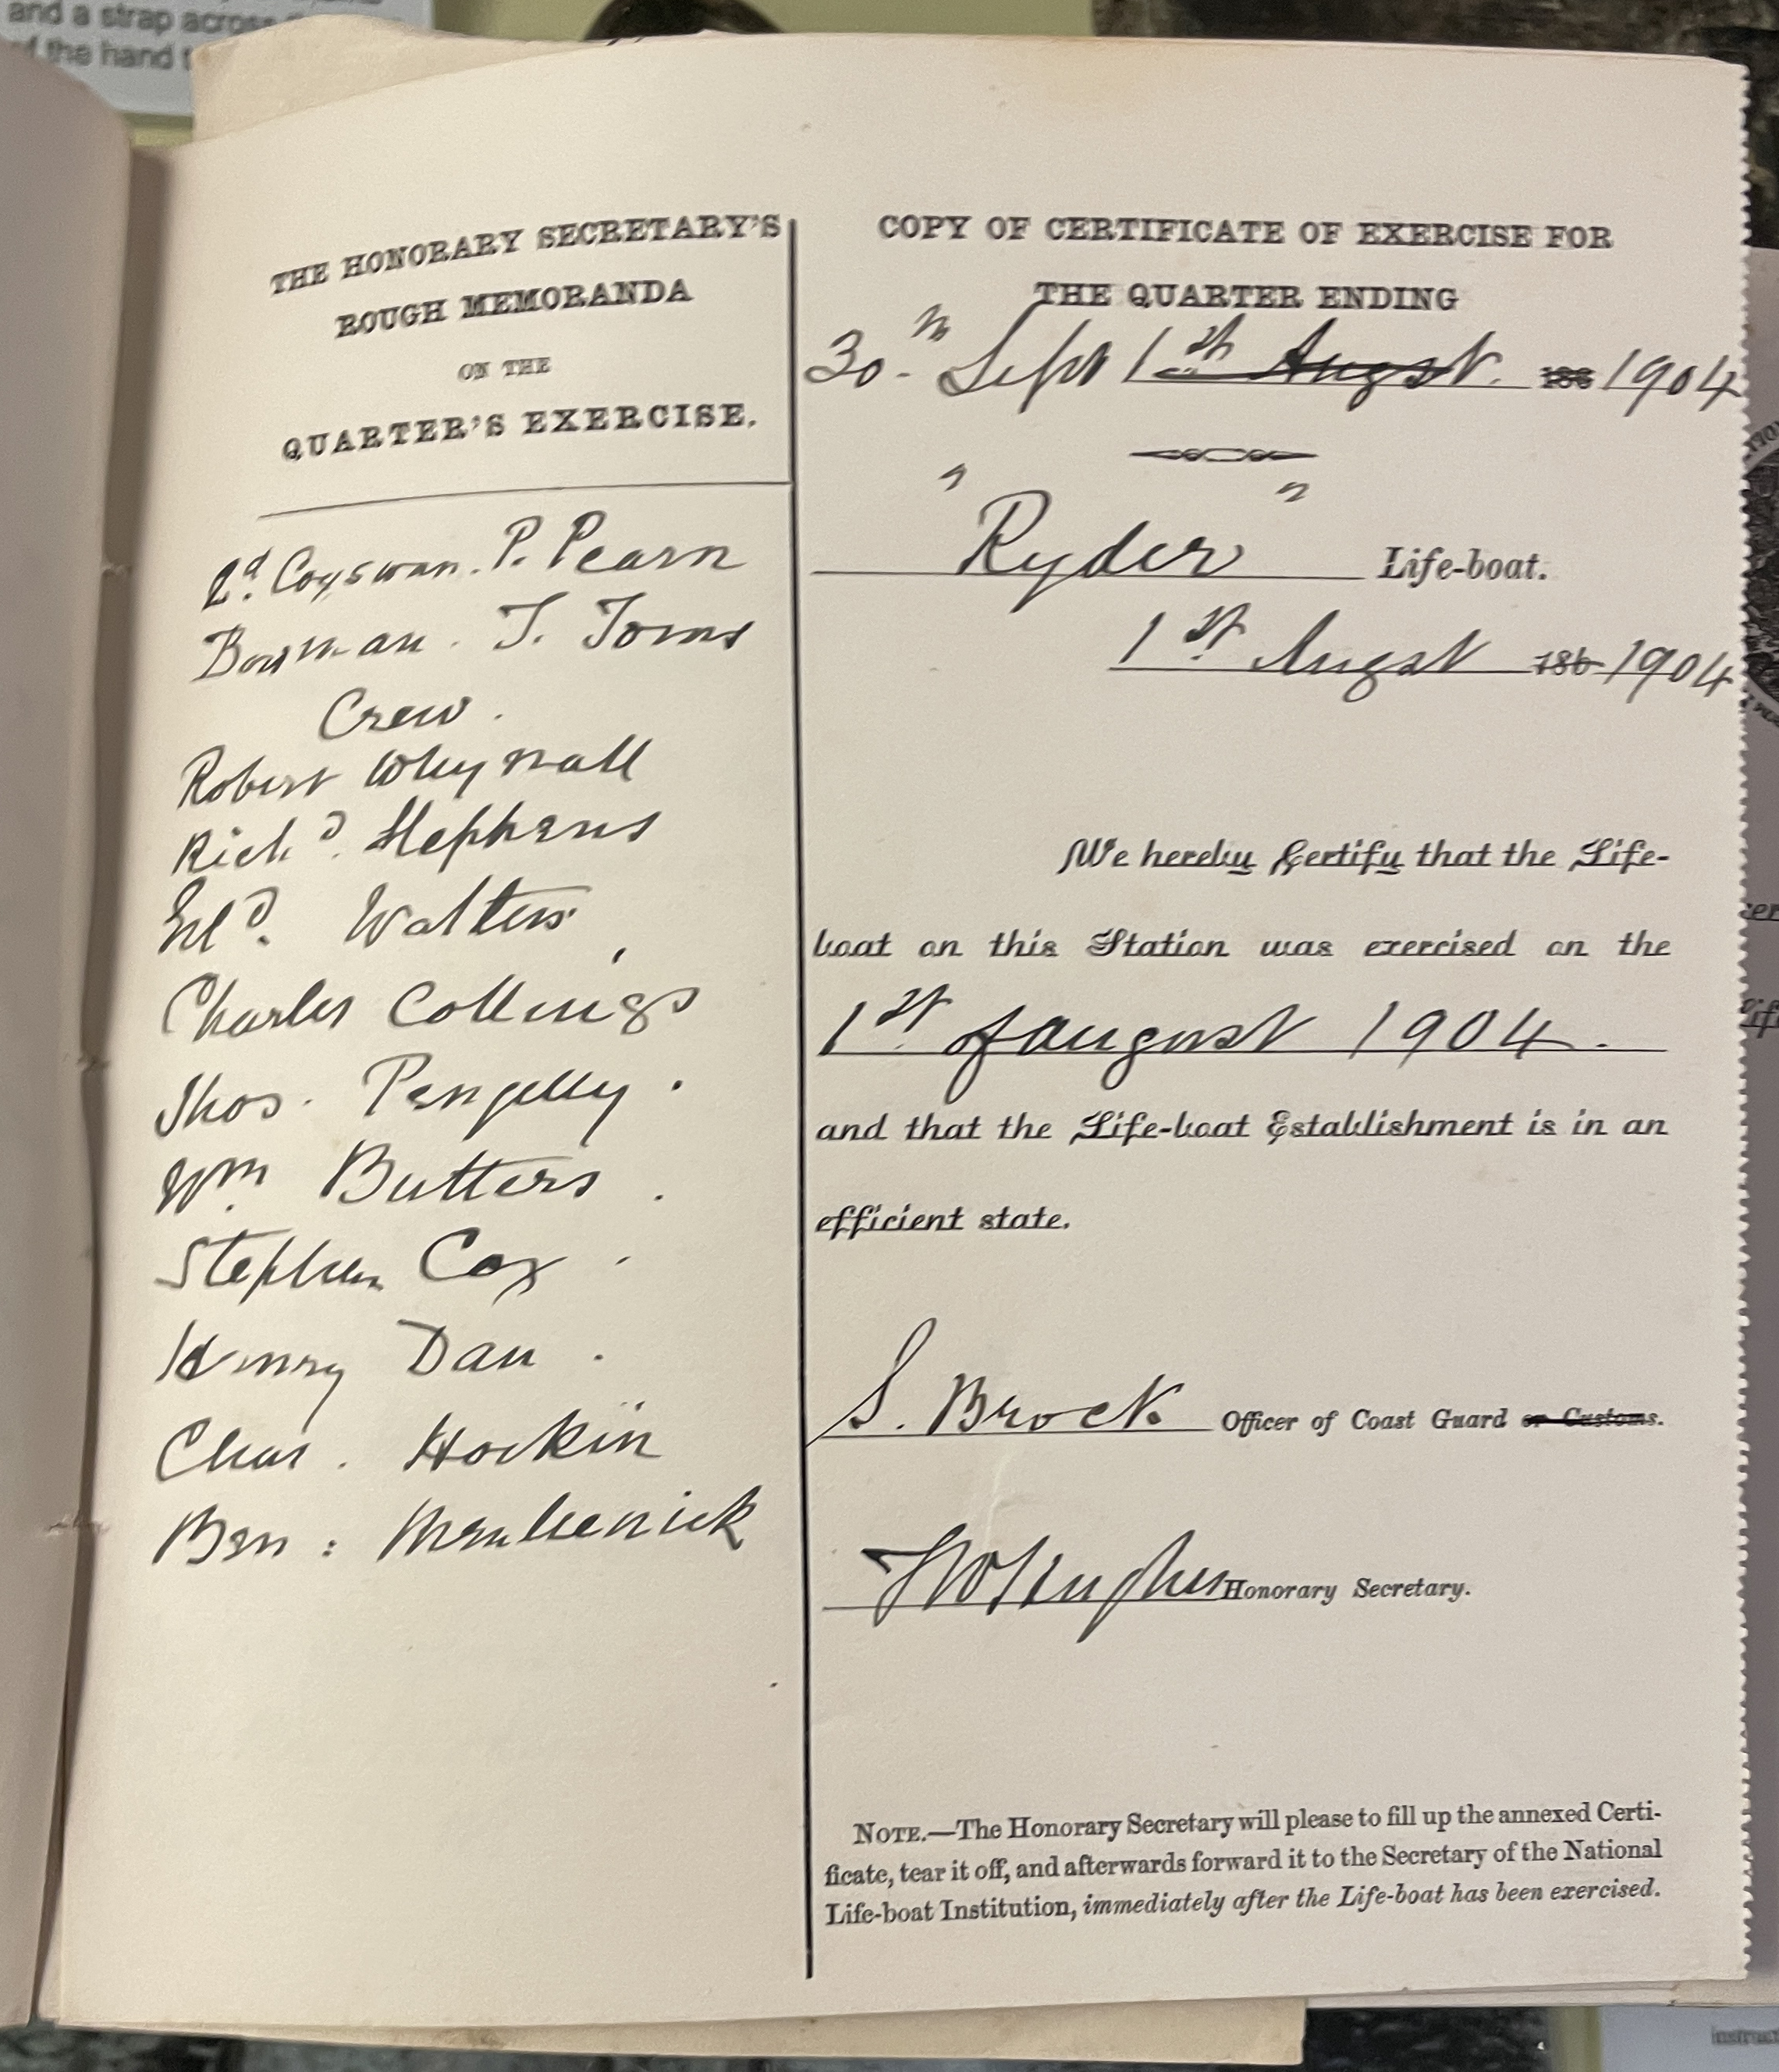 and a strap across
of the hand
THE HONORARY SECRETARY'S
ROUGH MEMORANDA
ON THE
QUARTER'S EXERCISE.
2d. Coxswan. P. Pearn
Bowman. T. Toms
Crew.
Robert Whynall
Richd. Stephens
Walters,
Charles Collings
Thos. Pengelly.
Wm. Butters.
Stephen Cox.
Henry Dan.
Chas. Hockin
Ben:
COPY OF CERTIFICATE OF EXERCISE FOR
THE QUARTER ENDING
30th Sept 1st Augst. 188 1904
"Ryder" Life-boat.
1st Augst 186 1904
We hereby Certify that the Life-
boat on this Station was exercised on the
1st of August 1904.
and that the Life-boat Establishment is in an
efficient state.
S. Brock Officer of Coast Guard or Customs.
Honorary Secretary.
NOTE.—The Honorary Secretary will please to fill up the annexed Certi-
ficate, tear it off, and afterwards forward it to the Secretary of the National
Life-boat Institution, immediately after the Life-boat has been exercised.